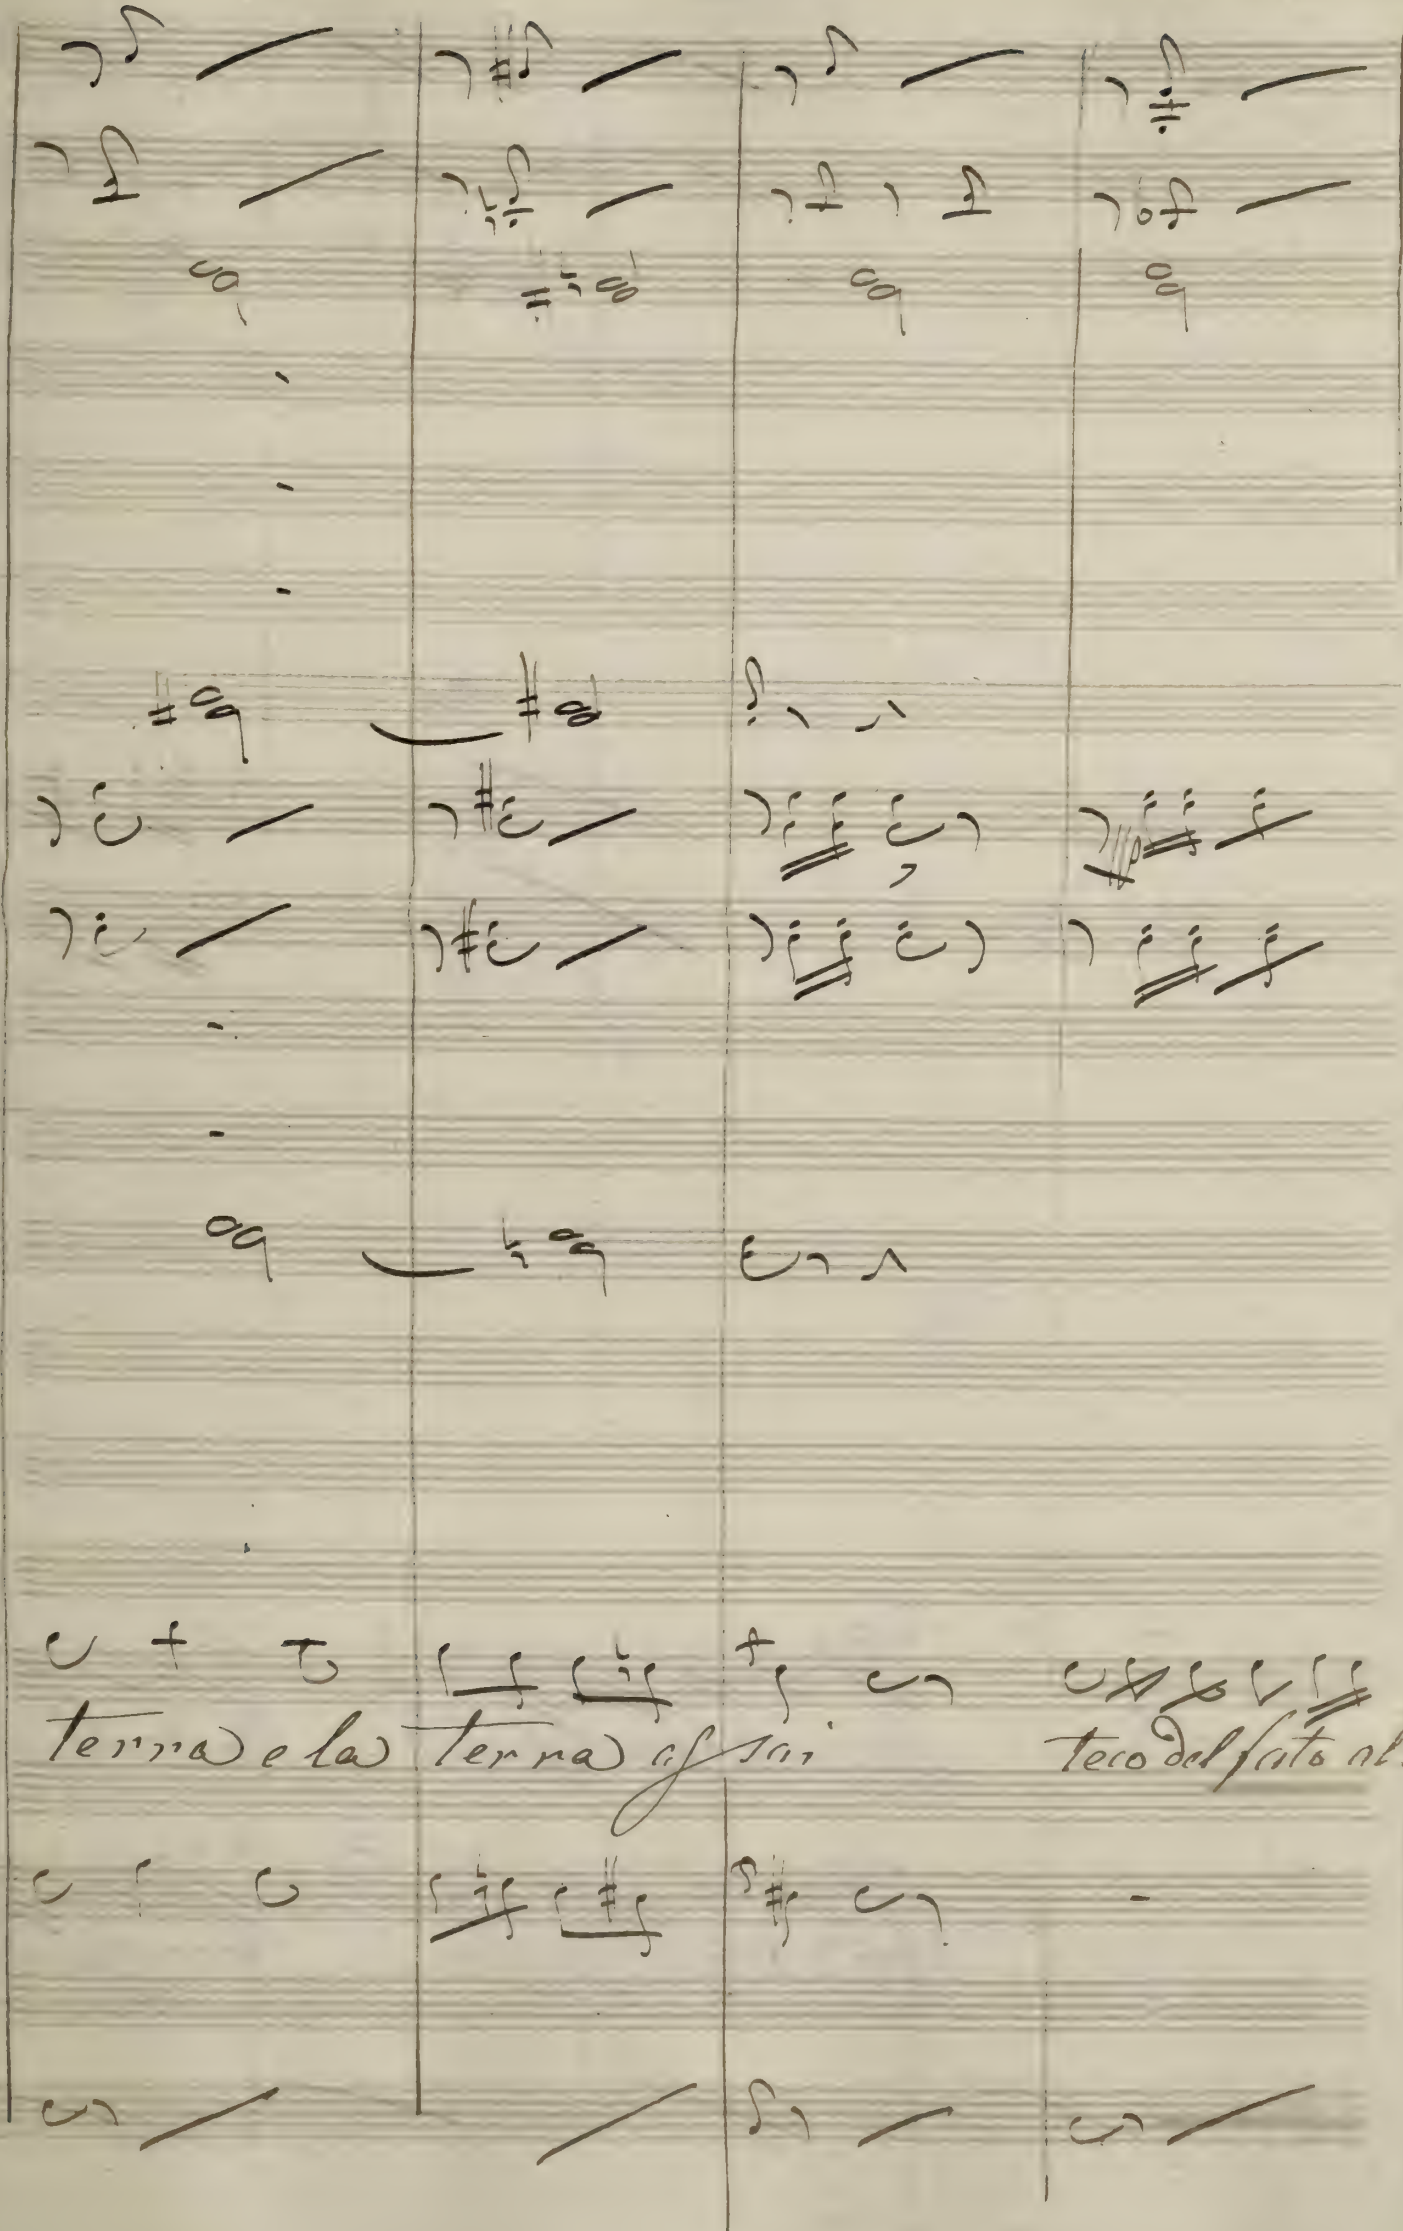 terra e la terra assai teco del fato al